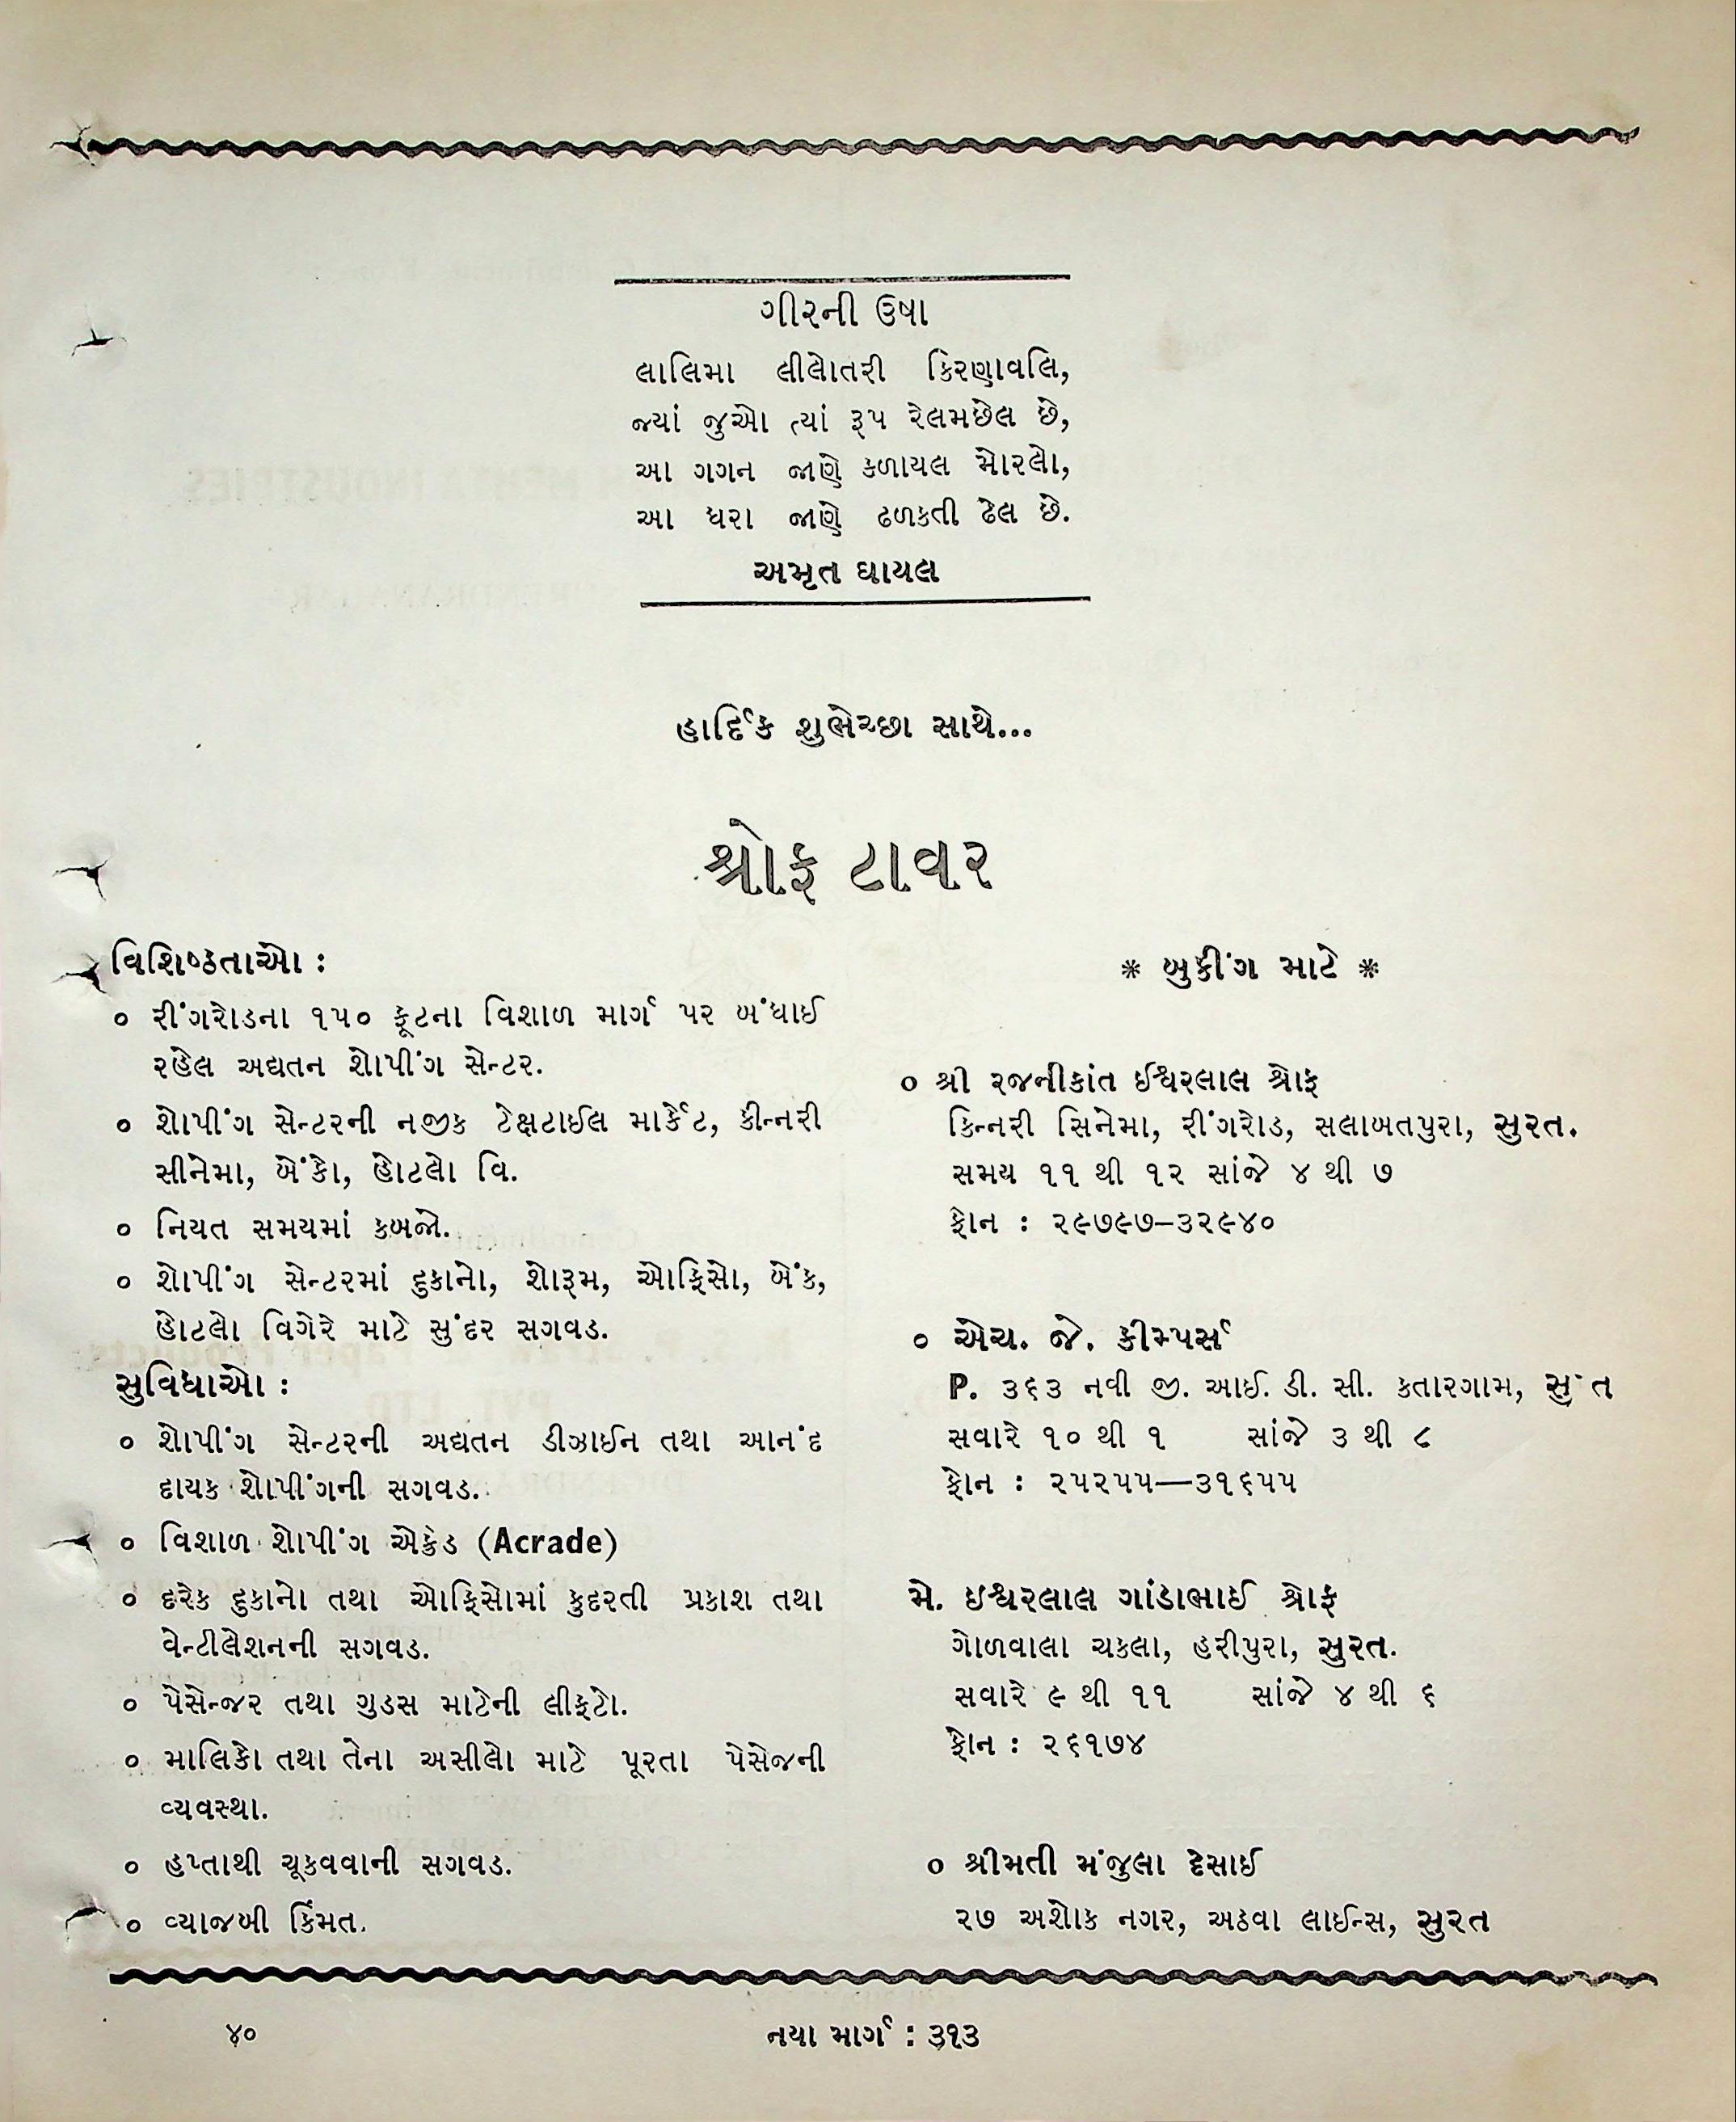 ગીરની ઉષા
લાલિમા લીલોતરી કિરણાવલિ,
જ્યાં જુઓ ત્યાં રૂપ રેલમછેલ છે,
આ ગગન જાણે કળાયલ મોરલો,
આ ધરા જાણે ઢળકતી ઢેલ છે.
અમૃત ઘાયલ
હાર્દિક શુભેચ્છા સાથે...
શ્રોફ ટાવર
વિશિષ્ઠતાઓ :
૦ રીંગરોડના ૧૫૦ ફૂટના વિશાળ માર્ગ પર બંધાઈ
રહેલ અદ્યતન શોપીંગ સેન્ટર.
૦ શોપીંગ સેન્ટરની નજીક ટેક્ષટાઈલ માર્કેટ, કીન્નરી
સીનેમા, બેંકો, હોટલો વિ.
૦ નિયત સમયમાં કબજો.
૦ શોપીંગ સેન્ટરમાં દુકાનો, શોરૂમ, ઓફિસો, બેંક,
હોટલો વિગેરે માટે સુંદર સગવડ.
સુવિધાઓ :
૦ શોપીંગ સેન્ટરની અદ્યતન ડીઝાઈન તથા આનંદ
દાયક શોપીંગની સગવડ.
૦ વિશાળ શોપીંગ એકેડ (Acrade)
૦ દરેક દુકાનો તથા ઓફિસોમાં કુદરતી પ્રકાશ તથા
વેન્ટીલેશનની સગવડ.
૦ પેસેન્જર તથા ગુડસ માટેની લીફટો.
૦ માલિકો તથા તેના અસીલો માટે પૂરતા પેસેજની
વ્યવસ્થા.
૦ હપ્તાથી ચૂકવવાની સગવડ.
૦ વ્યાજબી કિંમત.
* બુકીંગ માટે *
૦ શ્રી રજનીકાંત ઈશ્વરલાલ શ્રોફ
કિન્નરી સિનેમા, રીંગરોડ, સલાબતપુરા, સુરત.
સમય ૧૧ થી ૧૨ સાંજે ૪ થી ૭
ફોન : ૨૯૭૯૭–૩૨૯૪૦
૦ એચ. જે. કીમ્પર્સ
P. ૩૬૩ નવી જી. આઈ. ડી. સી. કતારગામ,
સવારે ૧૦ થી ૧ સાંજે ૩ થી ૮
ફોન : ૨૫૨૫૫—૩૧૬૫૫
મે. ઇશ્વરલાલ ગાંડાભાઈ શ્રોફ
ગોળવાલા ચકલા, હરીપુરા, સુરત.
સવારે ૯ થી ૧૧ સાંજે ૪ થી ૬
ફોન : ૨૬૧૭૪
૦ શ્રીમતી મંજુલા દેસાઈ
૨૭ અશોક નગર, અઠવા લાઈન્સ, સુરત
૪૦ નયા માર્ગ : ૩૧૩